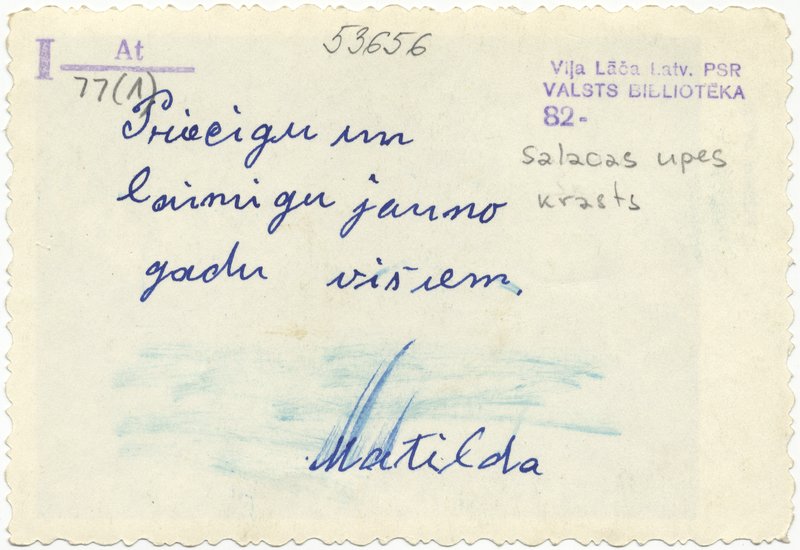 I At
77(1)
53656
Viļa Lāča Latv. PSR
VALSTS BIBLIOTĒKA
82-
Salacas upes
krasts
Priecigu un
laimigu jauno
gadu visiem.
Matilda